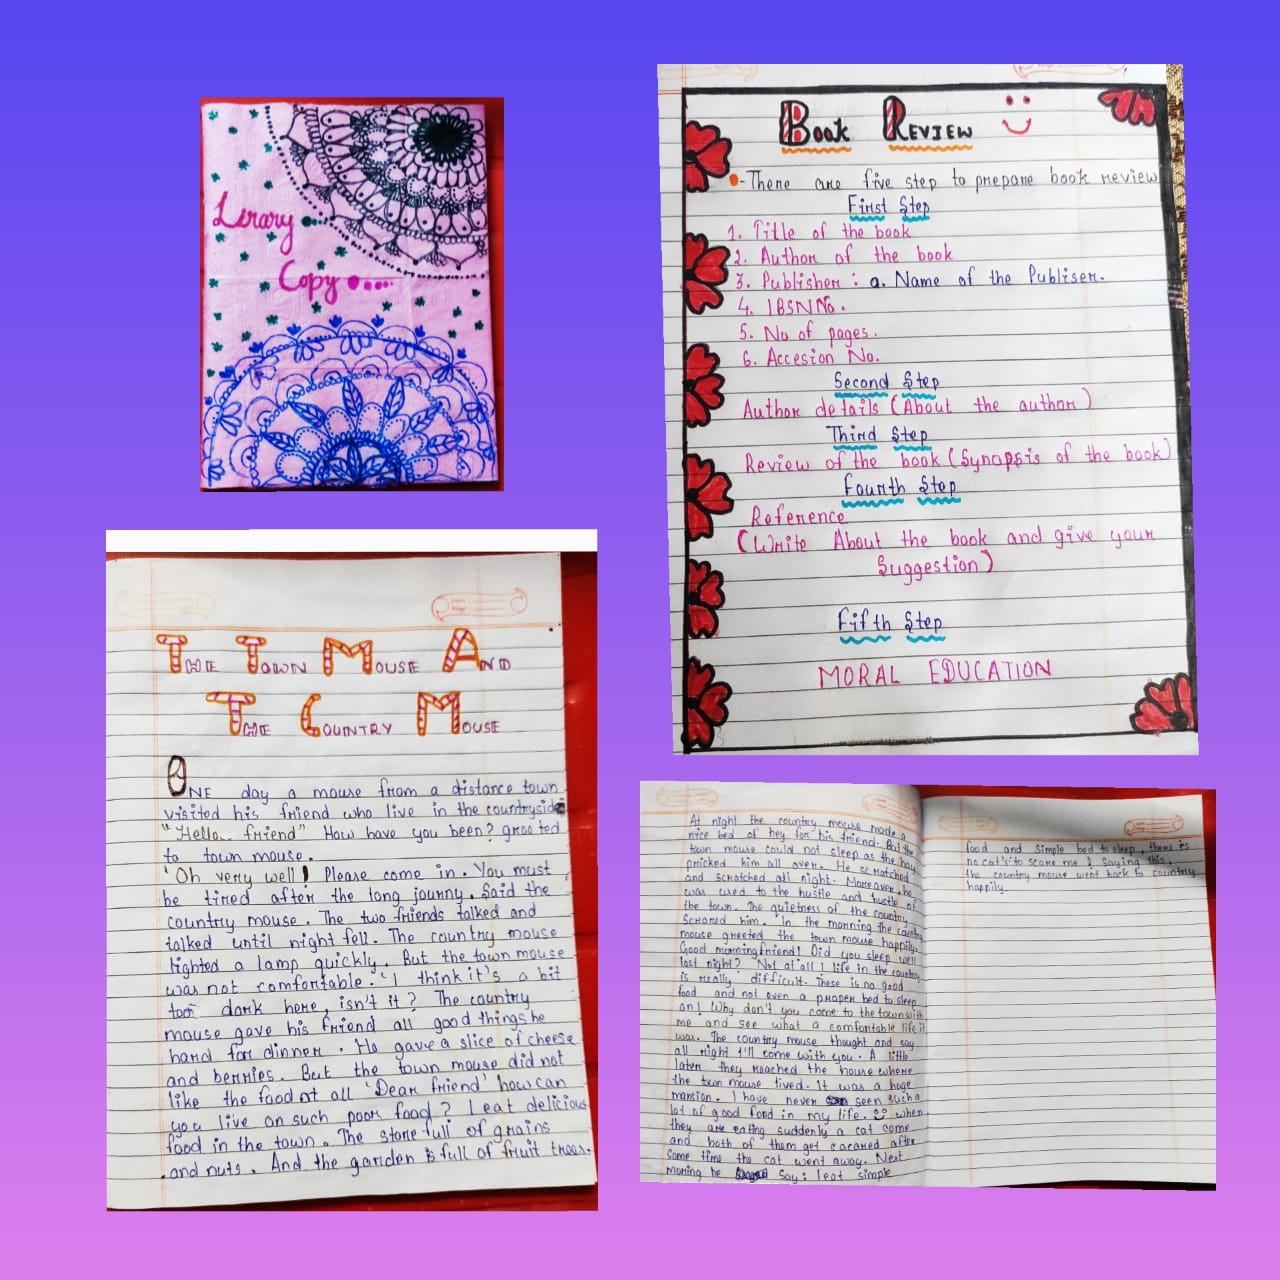 Lirary
Copy
Book Review
- There are five step to prepare book review
First Step
1. Title of the book
2. Author of the book
3. Publisher : a. Name of the Publiser.
4. IBSN No.
5. No of pages.
6. Accesion No.
Second Step
Author details (About the author)
Third Step
Review of the book (Synopsis of the book)
Fourth Step
Reference
(Write About the book and give your
Suggestion)
Fifth Step
MORAL EDUCATION
The Town Mouse And
The Country Mouse
One day a mouse from a distance town
visited his friend who live in the countryside
"Hello friend" How have you been? greeted
to town mouse.
'Oh very well! Please come in. You must
be tired after the long journy. Said the
country mouse. The two friends talked and
talked until night fell. The country mouse
lighted a lamp quickly. But the town mouse
was not comfortable. 'I think it's a bit
too dark here, isn't it? The country
mouse gave his friend all good things he
hard for dinner. He gave a slice of cheese
and berries. But the town mouse did not
like the food at all 'Dear friend' how can
you live on such poor food? I eat delicious
food in the town. The store full of grains
and nuts. And the garden is full of fruit trees.
At night the country mouse made a
nice bed of hey for his friend. But the
town mouse could not sleep as the hay
pricked him all over. He scratched
and scratched all night. Moreover, he
was used to the hustle and bustle of
the town. The quietness of the country
Scrared him. 'In the morning the country
mouse greeted the town mouse happily.
Good morning friend! Did you sleep well
last night? 'Not at all! life in the country
is really difficult. These is no good
food and not even a proper bed to sleep
on! Why don't you come to the town with
me and see what a comfortable life it
was. The country mouse thought and say
all right I'll come with you. A little
later they reached the house where
the town mouse lived. It was a huge
mansion. I have never seen such a
lot of good food in my life. when
they are eating suddenly a cat come
and both of them get scared after
Some time the cat went away. Next
moring he Say: I eat simple
food and simple bed to sleep, there is
no cat's to scare me! Saying this,
the country mouse went back to country
happily.